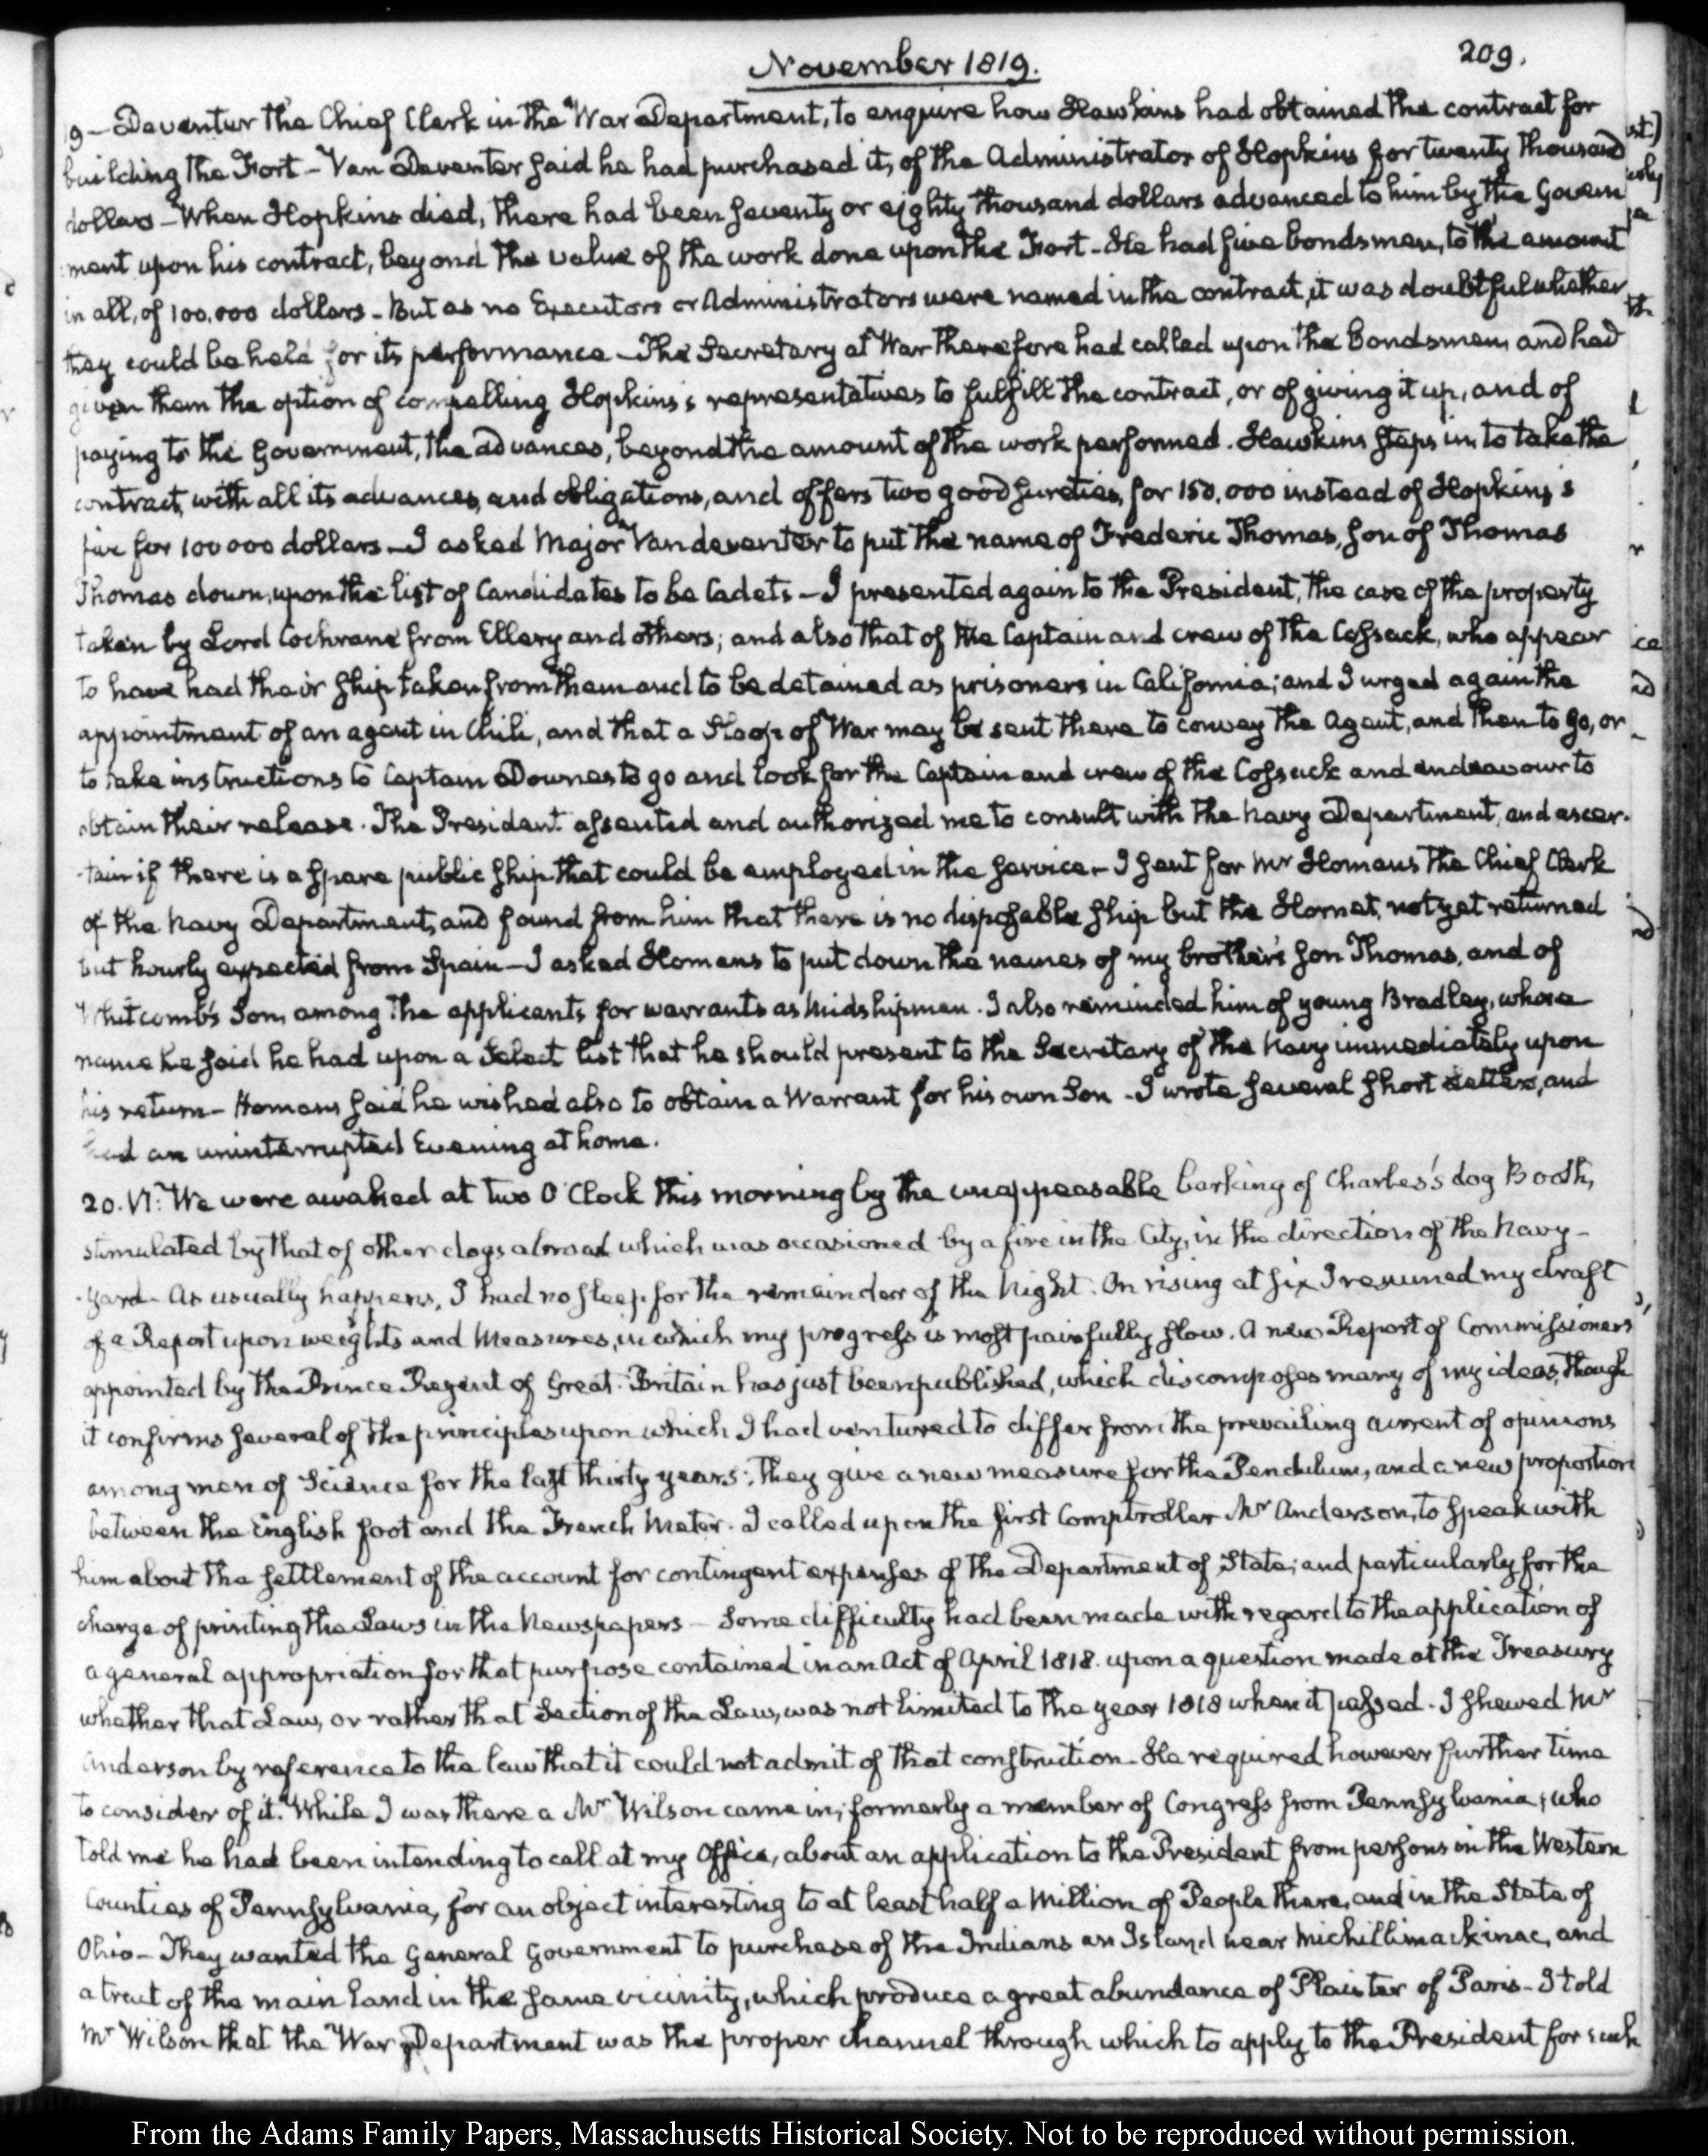 November 1819.
209.
19 – Deventer the Chief Clerk in the War Department, to enquire how Hawkins had obtained the contract for
building the Fort – Van Deventer said he had purchased it, of the Administrator of Hopkins for twenty thousand
dollars – When Hopkins died, there had been seventy or eighty thousand dollars advanced to him by the Govern
ment upon his contract, beyond the value of the work done upon the Fort – He had five bondsmen, to the amount
in all, of 100,000 dollars – But as no Executors or Administrators were named in the contract, it was doubtful whether
they could be held for its performance – The Secretary at War therefore had called upon the Bondsmen, and had
given them the option of compelling Hopkins's representatives to fulfill the contract, or of giving it up, and of
paying to the Government, the advances, beyond the amount of the work performed. Hawkins steps in to take the
contract, with all its advances, and obligations, and offers two good sureties, for 150,000 instead of Hopkins's
five for 100000 dollars – I asked Major Vandeventer to put the name of Frederic Thomas, son of Thomas
Thomas down, upon the list of Candidates to be Cadets – I presented again to the President, the case of the property
taken by Lord Cochrane from Ellery and others; and also that of the Captain and crew of the Cossack, who appear
to have had their ship taken from them and to be detained as prisoners in California; and I urged again the
appointment of an agent in Chili, and that a Sloop of War may be sent there to convey the Agent, and then to go, or
to take instructions to Captain Downes to go and look for the Captain and crew of the Cossack and endeavour to
obtain their release. The President assented and authorized me to consult with the Navy Department, and ascer-
-tain if there is a spare public ship that could be employed in the service – I sent for Mr Homans the Chief Clerk
of the Navy Department, and found from him that there is no disposable ship but the Hornet, not yet returned
but hourly expected from Spain – I asked Homans to put down the names of my brother's son Thomas, and of
Whitcomb's Son, among the applicants for warrants as Midshipmen. I also reminded him of young Bradley, whose
name he said he had upon a Select list that he should present to the Secretary of the Navy immediately upon
his return – Homans said he wished also to obtain a Warrant for his own Son – I wrote several short Letters, and
had an uninterrupted Evening at home.
20. VI: We were awaked at two O'Clock this morning by the unappeasable barking of Charles's dog Booth,
stimulated by that of other dogs abroad which was occasioned by a fire in the City, in the direction of the Navy-
-yard – As usually happens, I had no sleep for the remainder of the Night. On rising at six I resumed my draft
of a Report upon weights and Measures, in which my progress is most painfully slow. A new Report of Commissioners
appointed by the Prince Regent of Great-Britain has just been published, which discomposes many of my ideas, though
it confirms several of the principles upon which I had ventured to differ from the prevailing current of opinions
among men of Science for the last thirty years: They give a new measure for the Pendulum, and a new proportion
between the English foot and the French Meter. I called upon the first Comptroller Mr Anderson, to speak with
him about the settlement of the account for contingent expenses of the Department of State; and particularly for the
charge of printing the Laws in the Newspapers – Some difficulty had been made with regard to the application of
a general appropriation for that purpose contained in an Act of April 1818. upon a question made at the Treasury
whether that Law, or rather that Section of the Law, was not limited to the year 1818 when it passed. I shewed Mr
Anderson by reference to the law that it could not admit of that construction – He required however further time
to consider of it. While I was there a Mr Wilson came in; formerly a member of Congress from Pennsylvania; who
told me he had been intending to call at my Office, about an application to the President from persons in the Western
Counties of Pennsylvania, for an object interesting to at least half a Million of People there, and in the State of
Ohio – They wanted the General Government to purchase of the Indians an Island near Michillimackinac, and
a tract of the main land in the same vicinity, which produce a great abundance of Plaister of Paris – I told
Mr Wilson that the War Department was the proper channel through which to apply to the President for such
From the Adams Family Papers, Massachusetts Historical Society. Not to be reproduced without permission.